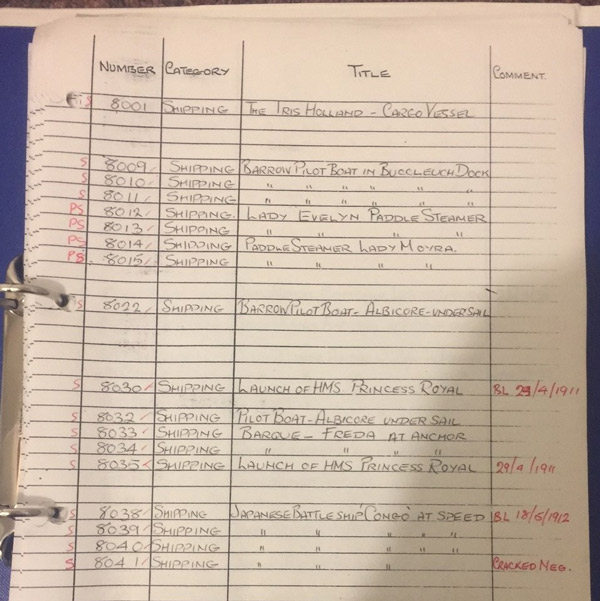 NUMBER CATEGORY TITLE COMMENT.
S 8001 SHIPPING THE IRIS HOLLAND - CARGO VESSEL
S 8009 SHIPPING BARROW PILOT BOAT IN BUCCLEUCH DOCK
S 8010 SHIPPING " " " " " "
S 8011 SHIPPING " " " " " "
PS 8012 SHIPPING LADY EVELYN PADDLE STEAMER
PS 8013 SHIPPING " " " "
PS 8014 SHIPPING PADDLE STEAMER LADY MOYRA.
PS 8015 SHIPPING " " " "
S 8022 SHIPPING BARROW PILOT BOAT - ALBICORE - UNDER SAIL
S 8030 SHIPPING LAUNCH OF HMS PRINCESS ROYAL BL 29/4/1911
S 8032 SHIPPING PILOT BOAT - ALBICORE UNDER SAIL
S 8033 SHIPPING BARQUE - FREDA AT ANCHOR
S 8034 SHIPPING " " " "
S 8035 SHIPPING LAUNCH OF HMS PRINCESS ROYAL 29/4/1911
S 8038 SHIPPING JAPANESE BATTLESHIP 'CONGO' AT SPEED BL 18/5/1912
S 8039 SHIPPING " " " " "
S 8040 SHIPPING " " " " "
S 8041 SHIPPING " " " CRACKED NEG.